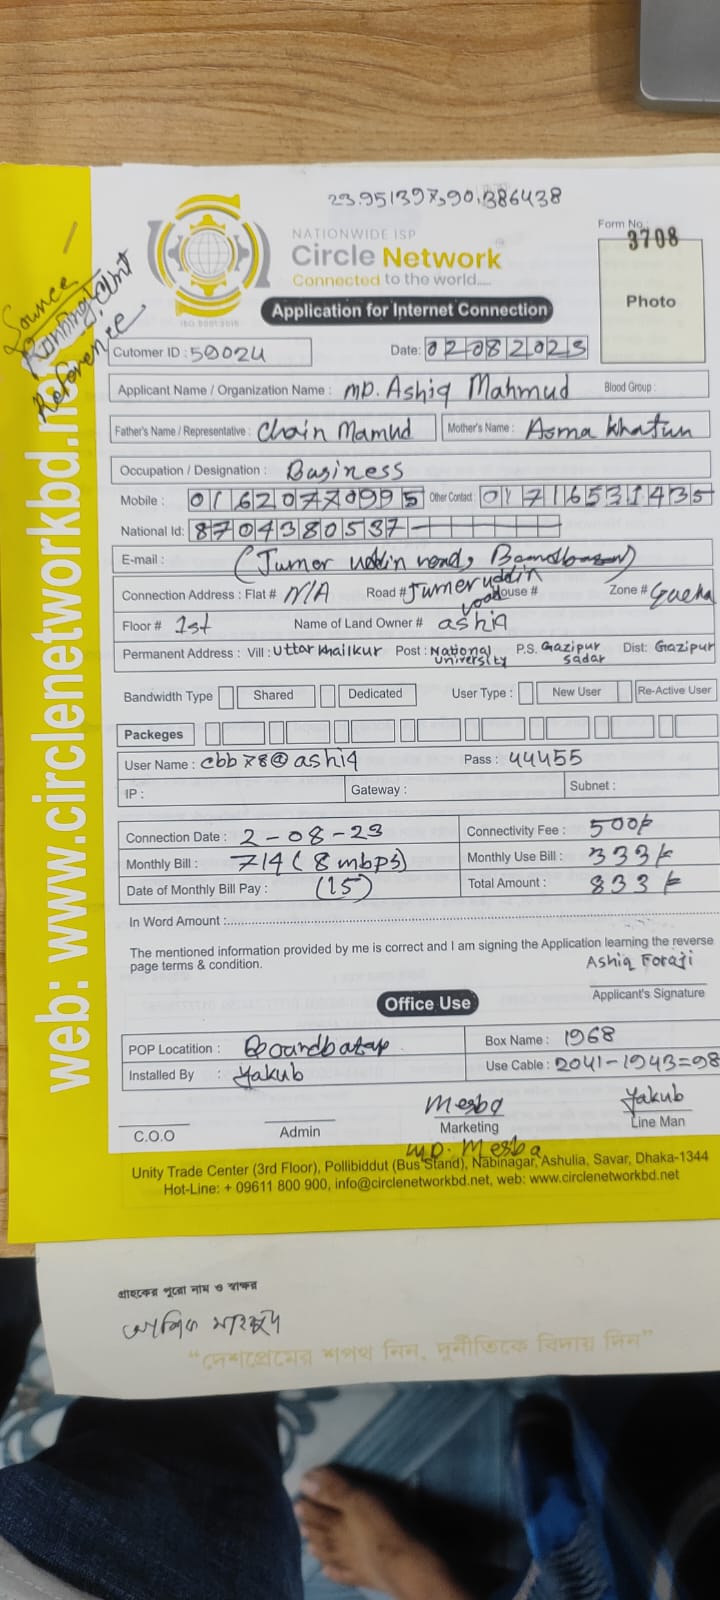 23.951397,90.386438
NATIONWIDE ISP
Circle Network
Connected to the world.....
ISO 9001:2015
Form No.:
3708
Photo
Application for Internet Connection
Source
Running Clint
Reference
web: www.circlenetworkbd.net
Cutomer ID : 59024 Date: 02082023
Applicant Name / Organization Name : MD. Ashiq Mahmud Blood Group :
Father's Name / Representative : Chain Mamud Mother's Name : Asma Khatun
Occupation / Designation : Business
Mobile : 01620770995 Other Contact : 01716531435
National Id: 8704380537
E-mail : (Jumer uddin road,
Connection Address : Flat # N/A Road # Jumeruddin road House # Zone #
Floor # 1st Name of Land Owner # ashiq
Permanent Address : Vill : Uttar Khailkur Post : National University P.S. Gazipur Sadar Dist: Gazipur
Bandwidth Type Shared Dedicated User Type : New User Re-Active User
Packeges
User Name : cbb78@ashiq Pass : 44455
IP : Gateway : Subnet :
Connection Date : 2-08-23 Connectivity Fee : 500/-
Monthly Bill : 714 (8 mbps) Monthly Use Bill : 333/-
Date of Monthly Bill Pay : (15) Total Amount : 833/-
In Word Amount :
The mentioned information provided by me is correct and I am signing the Application learning the reverse
page terms & condition.
Ashiq Foraji
Applicant's Signature
Office Use
POP Locatition : Boardbazar Box Name : 1968
Installed By : Yakub Use Cable : 2041-1943=98
Mesba Yakub
C.O.O Admin Marketing Line Man
MD. Mesba
Unity Trade Center (3rd Floor), Pollibiddut (Bus Stand), Nabinagar, Ashulia, Savar, Dhaka-1344
Hot-Line: + 09611 800 900, info@circlenetworkbd.net, web: www.circlenetworkbd.net
গ্রাহকের পুরো নাম ও স্বাক্ষর
আশিক মাহমুদ
“দেশপ্রেমের শপথ নিন, দুর্নীতিকে বিদায় দিন”